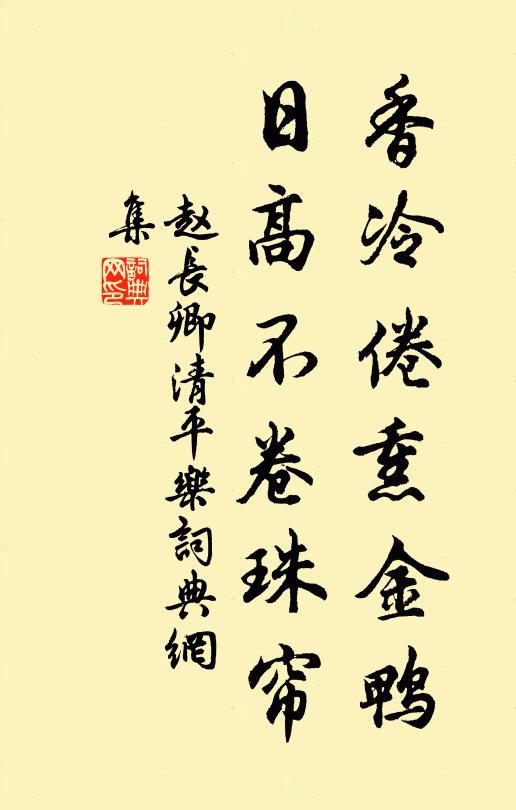 香冷倦熏金鸭
日高不卷珠帘
赵長卿清平樂詞典網
集
詞典
网印